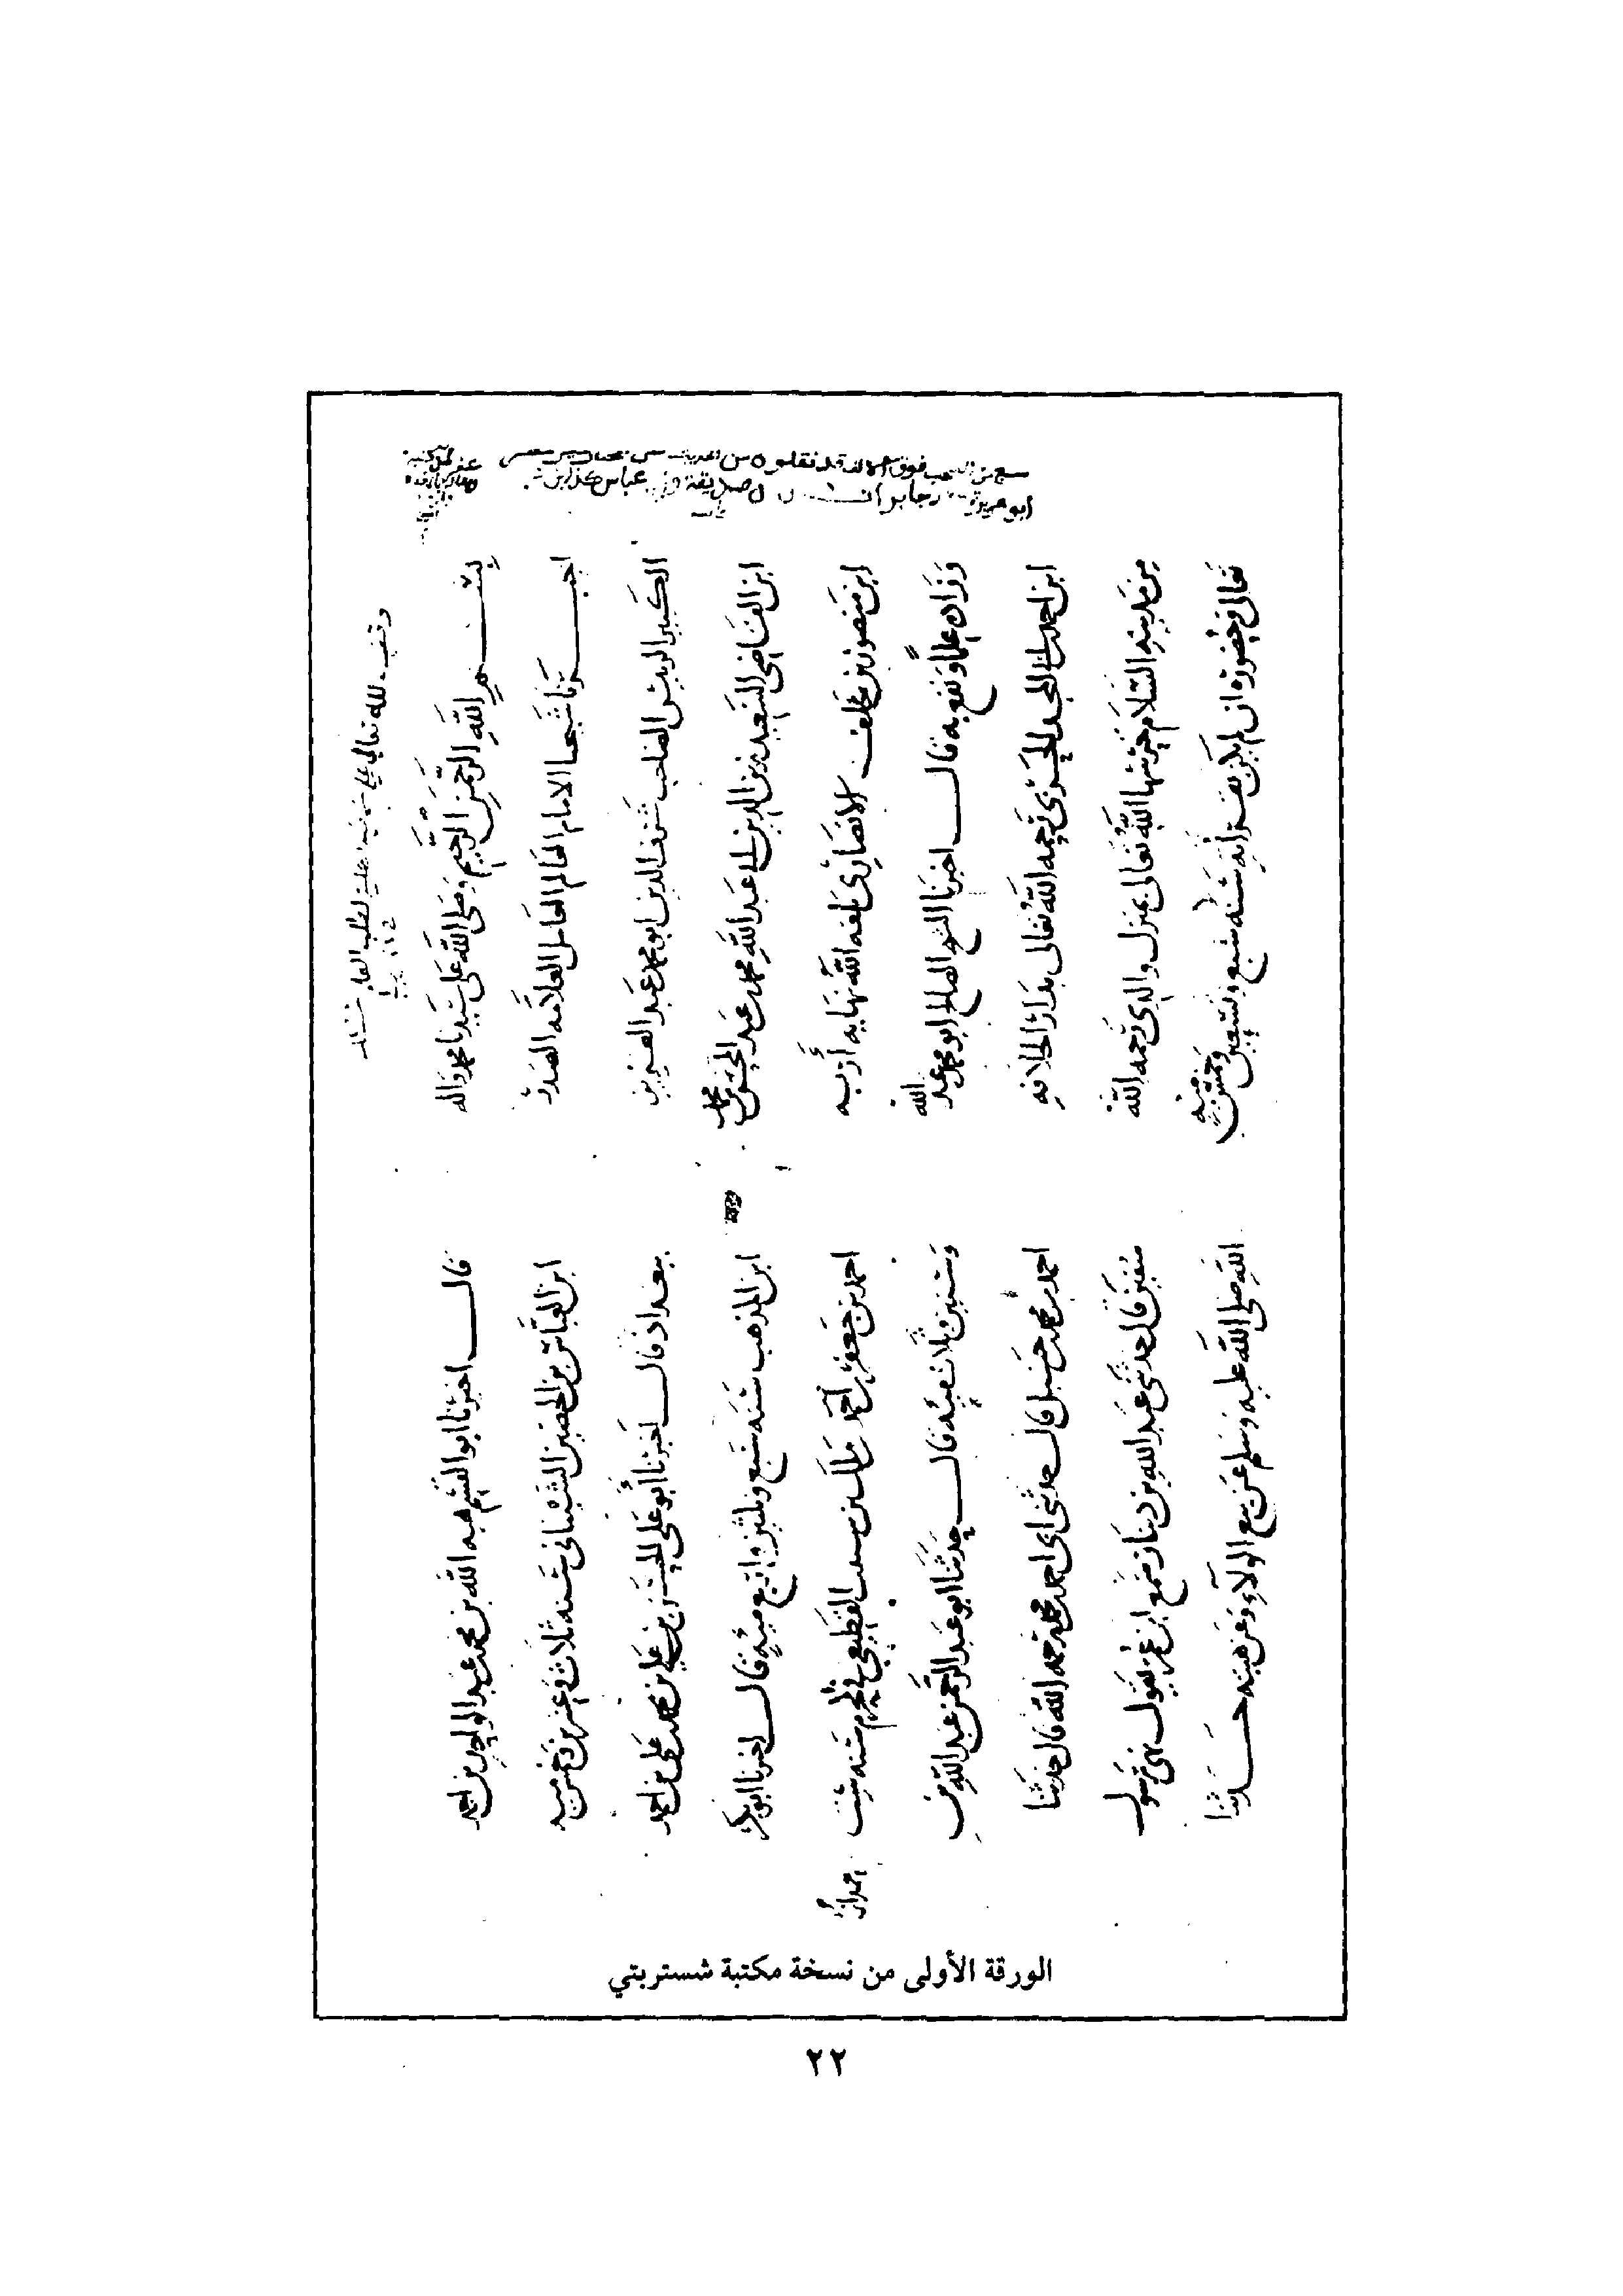 سبع من الصحب فوق الألف قد نقلوا من الحديث عن المختار خير مضر
أبو هريرة جابر أنس صديقة وابن عباس كذا ابن عمر
وقف لله تعالى على
لطلبة العلم
بسم الله الرحمن الرحيم وصلى الله على سيدنا محمد واله
اخبرنا شيخنا الامام العالم العامل العلامه الصدر
الكبير الرييس الصاحب شرف الدين ابو محمد عبد العزيز بن
ابن القاضي السعيد زين الدين ابي عبد الله محمد بن عبد المحسن بن محمد
ابن منصور بن خلف الانصاري بلغه الله نهايه أربه
وزاده علما ونفع به قال اخبرنا الشيخ الصالح ابو محمد عبد الله
ابن احمد بن ابي المجد الحربي رحمه الله تعالى بدار الخلافه
من مدينه السلام حرسها الله تعالى بمنزل والدي رحمه الله
تعالى وحضوره ان لم يكن بقراته سنه سبع وتسعين وخمس ميه
قال اخبرنا ابو القسم هبه الله بن محمد بن عبد الواحد بن احمد
ابن العباس بن الحصين الشيباني سنه ثلاث وعشرين وخمس ميه
ببغداد قال اخبرنا أبو علي الحسن بن علي بن محمد بن علي بن احمد
ابن المذهب سنه سبع وثلثين واربع ميه قال اخبرنا ابو بكر
احمد بن جعفر بن احمد بن مالك بن شبيب القطيعي في المحرم سنه ست
وستين وثلاثميه قال حدثنا ابو عبد الرحمن عبد الله بن
احمد بن محمد بن حنبل قال حدثني ابي احمد بن محمد رحمه الله قال حدثنا
سفين قال حدثني عبد الله بن دينار سمع ابن عمر يقول نهى رسول
الله صلى الله عليه وسلم عن بيع الولاء وعن هبته حدثنا
الورقة الأولى من نسخة مكتبة شستربتي
٢٢